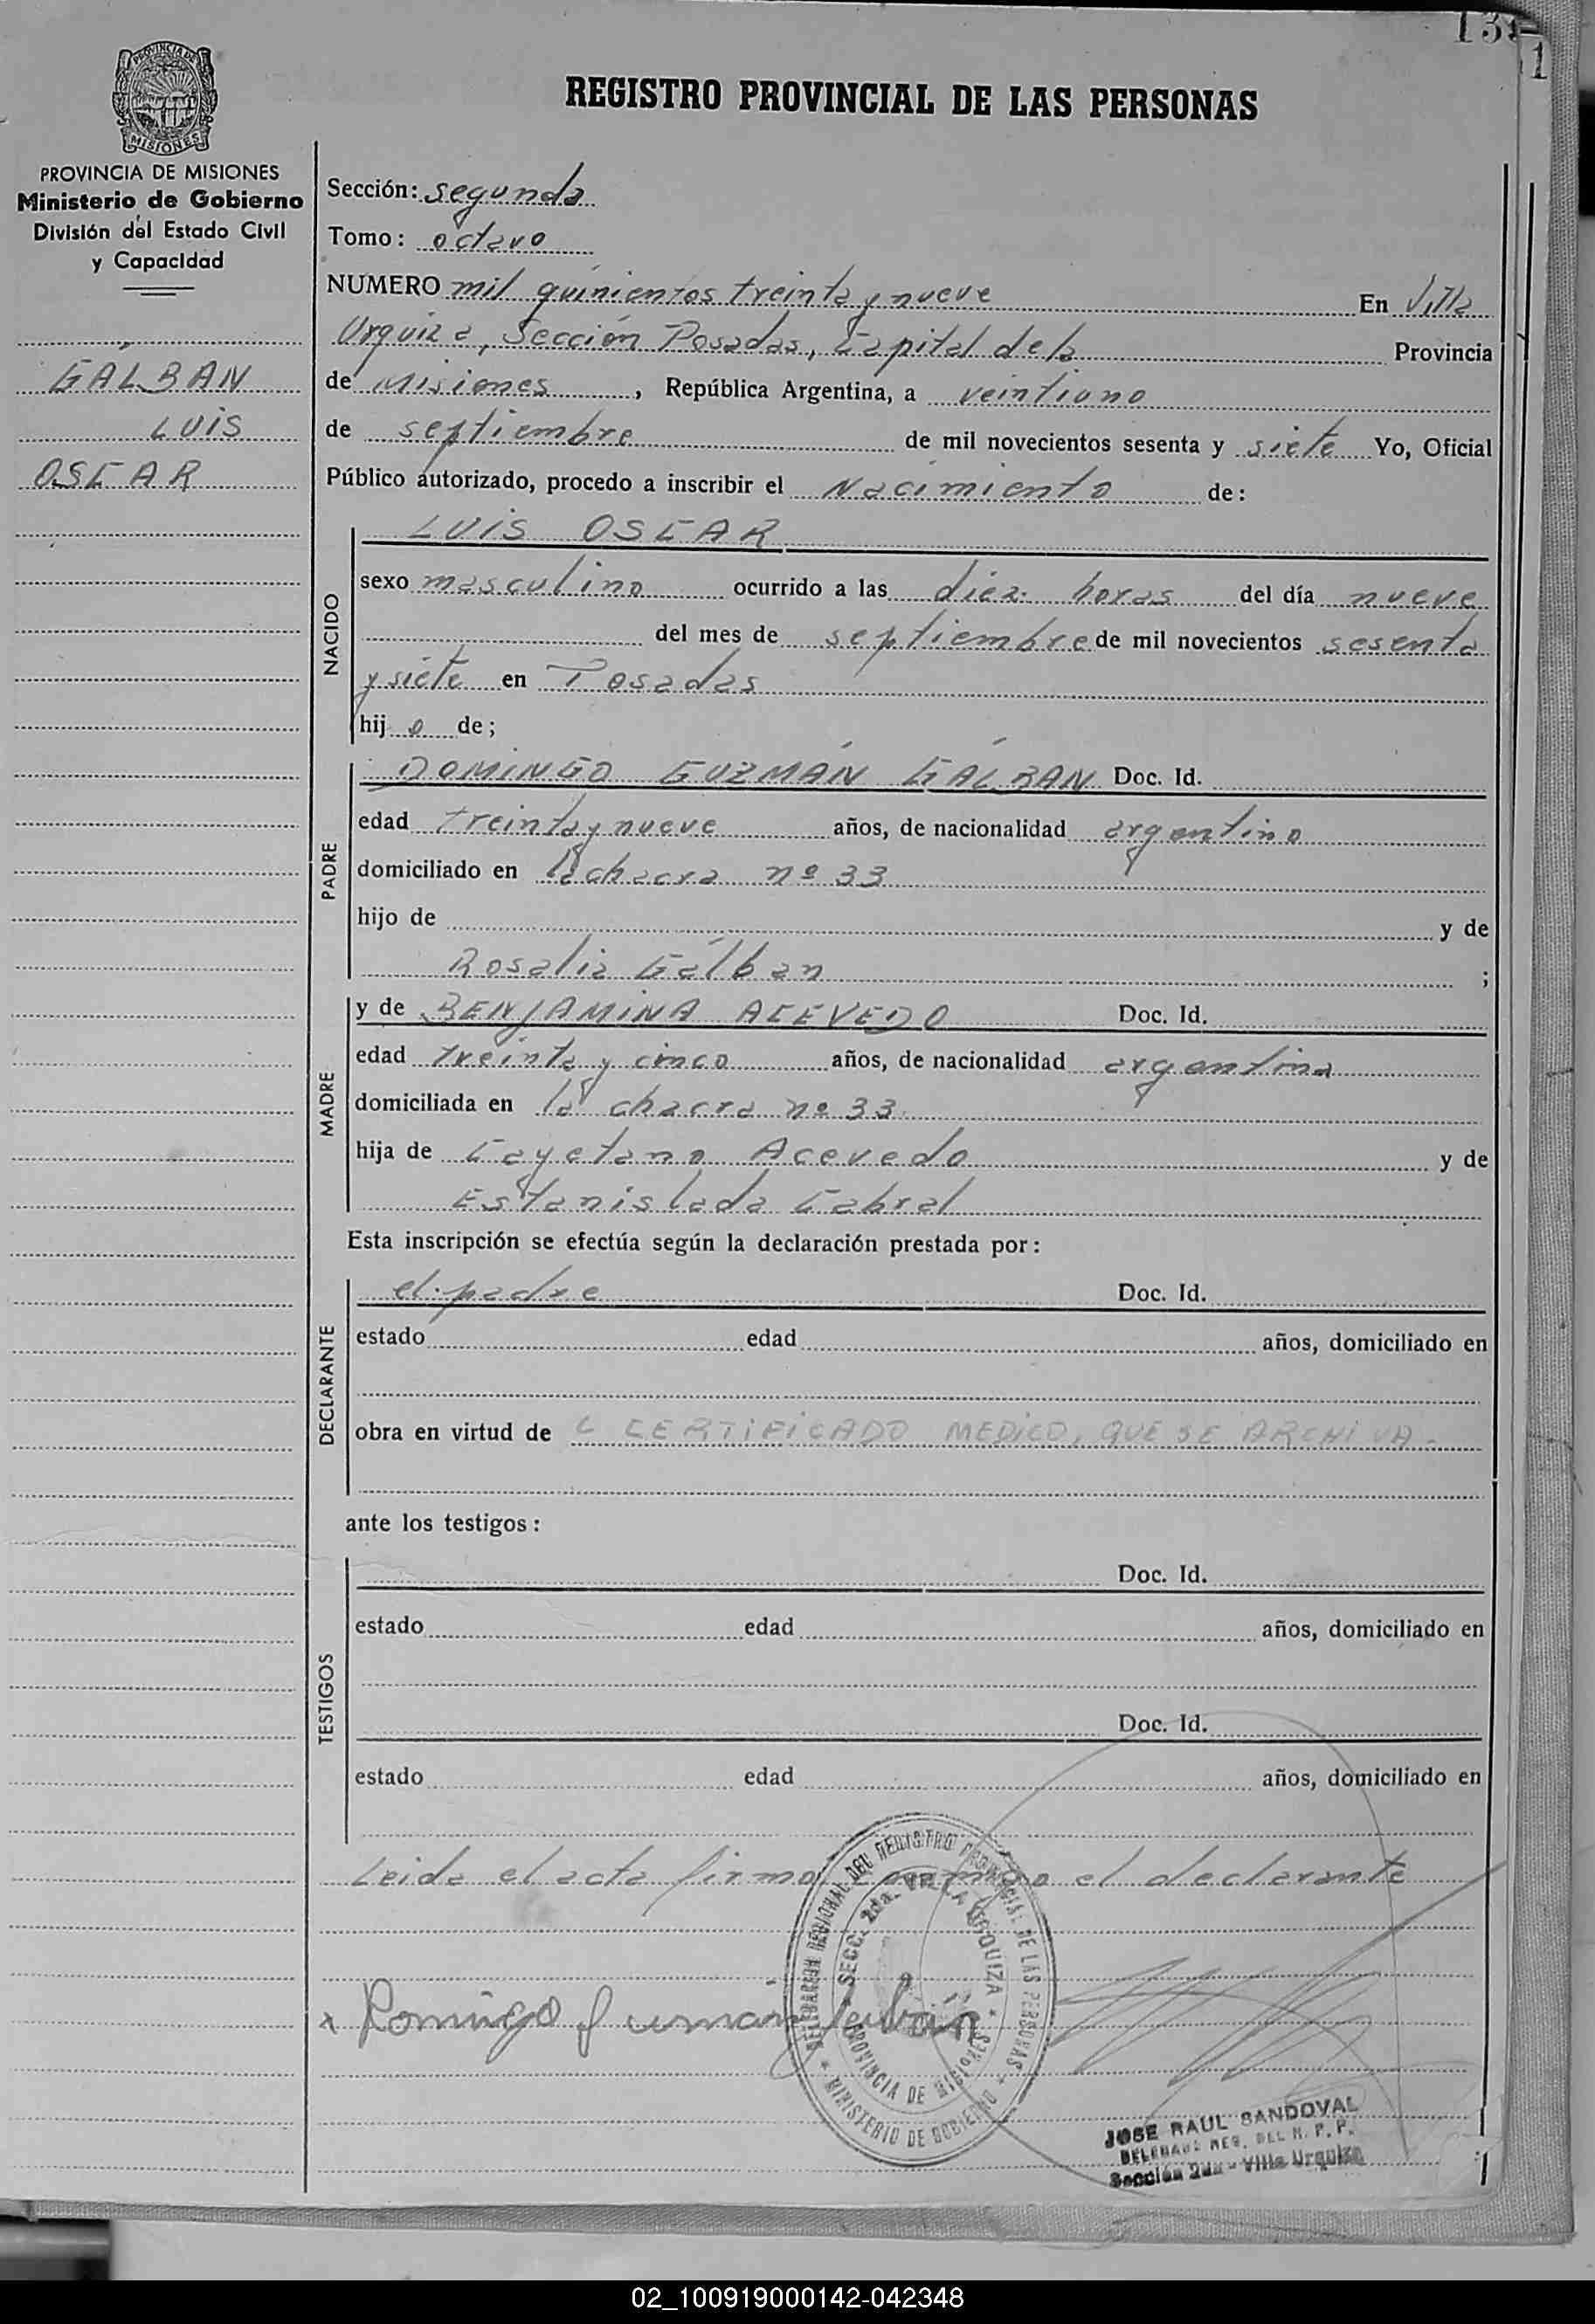 131
1
PROVINCIA DE
MISIONES
REGISTRO PROVINCIAL DE LAS PERSONAS
PROVINCIA DE MISIONES
Ministerio de Gobierno
División del Estado Civil
y Capacidad
GÁLBAN
LUIS
OSCAR
Sección: segunda
Tomo: octavo
NUMERO mil quinientos treinta y nueve En Villa
Urquiza, Sección Posadas, Capital de la Provincia
de Misiones, República Argentina, a veintiuno
de septiembre de mil novecientos sesenta y siete Yo, Oficial
Público autorizado, procedo a inscribir el Nacimiento de:
NACIDO
LUIS OSCAR
sexo masculino ocurrido a las diez horas del día nueve
del mes de septiembre de mil novecientos sesenta
y siete en Posadas
hij o de;
PADRE
DOMINGO GUZMÁN GÁLBAN Doc. Id.
edad treinta y nueve años, de nacionalidad argentino
domiciliado en la chacra nº 33
hijo de y de
Rosalia Gálban ;
MADRE
y de BENJAMINA ACEVEDO Doc. Id.
edad treinta y cinco años, de nacionalidad argentina
domiciliada en la chacra nº 33
hija de Cayetano Acevedo y de
Estanislada Cabral
Esta inscripción se efectúa según la declaración prestada por:
DECLARANTE
el padre Doc. Id.
estado edad años, domiciliado en
obra en virtud de L CERTIFICADO MEDICO, QUE SE ARCHIVA.
ante los testigos:
TESTIGOS
Doc. Id.
estado edad años, domiciliado en
Doc. Id.
estado edad años, domiciliado en
Leida el acta firmó conmigo el declarante
DELEGACION REGIONAL DEL REGISTRO PROVINCIAL DE LAS PERSONAS
SECC. 2da. VILLA URQUIZA
PROVINCIA DE MISIONES
MINISTERIO DE GOBIERNO
x Domingo
JOSE RAUL SANDOVAL
DELEGADO REG. DEL R. P. P.
Sección 2da - Villa Urquiza
02_100919000142-042348